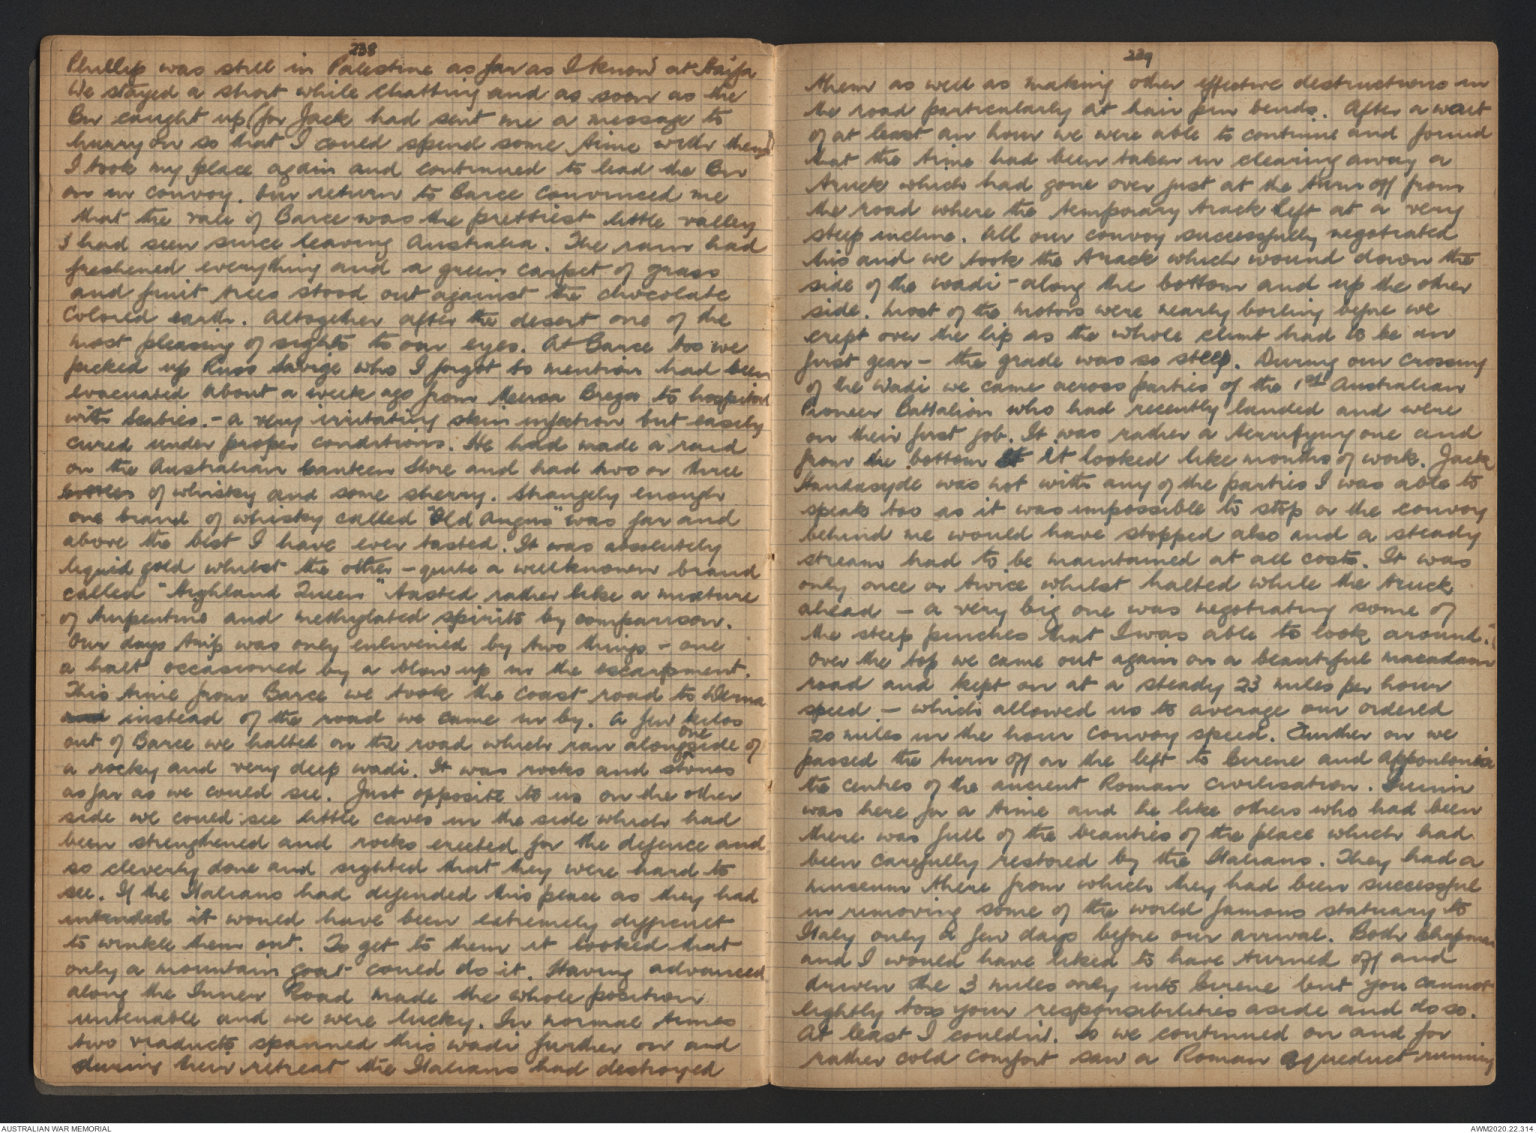 238
Phillip was still in Palestine as far as I know at Haifa
We stayed a short while chatting and as soon as the
Bn caught up (for Jack had sent me a message to
hurry on so that I could spend some time with them)
I took my place again and continued to lead the Bn
on in convoy. Our return to Barce convinced me
that the vale of Barce was the prettiest little valley
I had seen since leaving Australia. The rain had
freshened everything and a green carpet of grass
and fruit trees stood out against the chocolate
colored earth. Altogether after the desert one of the
most pleasing of sights to our eyes. At Barce too we
picked up Russ Savige who I forgot to mention had been
evacuated about a week ago from Mersa Brega to hospital
with scabies. - a very irritating skin infection but easily
cured under proper conditions. He had made a raid
on the Australian Canteen Store and had two or three
bottles of whisky and some sherry. Strangely enough
one brand of whisky called "Old Angus" was far and
above the best I have ever tasted. It was absolutely
liquid gold whilst the other - quite a wellknown brand
called "Highland Queen" tasted rather like a mixture
of turpentine and methylated spirits by comparison.
Our days trip was only enlivened by two things - one
a halt occasioned by a blow up in the escarpment.
This time from Barce we took the coast road to Derna
instead of the road we came in by. A few kilos
out of Barce we halted on the road which ran along one side of
a rocky and very deep wadi. It was rocks and stones
as far as we could see. Just opposite to us on the other
side we could see little caves in the side which had
been strengthened and rocks erected for the defence and
so cleverly done and sighted that they were hard to
see. If the Italians had defended this place as they had
intended it would have been extremely difficult
to winkle them out. To get to them it looked that
only a mountain goat could do it. Having advanced
along the Inner Road made the whole position
untenable and we were lucky. In normal times
two viaducts spanned this wadi further on and
during their retreat the Italians had destroyed
239
them as well as making other effective destructions in
the road particularly at hair pin bends. After a wait
of at least an hour we were able to continue and found
that the time had been taken in clearing away a
truck which had gone over just at the turn off from
the road where the temporary track left at a very
steep incline. All our convoy successfully negotiated
this and we took the track which wound down the
side of the wadi - along the bottom and up the other
side. Most of the motors were nearly boiling before we
crept over the lip as the whole climb had to be in
first gear - the grade was so steep. During our crossing
of the Wadi we came across parties of the 1st Australian
Pioneer Battalion who had recently landed and were
on their first job. It was rather a terrifying one and
from the bottom it looked like months of work. Jack
Handasyde was not with any of the parties I was able to
speak too as it was impossible to stop or the convoy
behind me would have stopped also and a steady
stream had to be maintained at all costs. It was
only once or twice whilst halted while the truck
ahead - a very big one was negotiating some of
the steep pinches that I was able to look around.
Over the top we came out again on a beautiful macadam
road and kept on at a steady 23 miles per hour
speed - which allowed us to average our ordered
20 miles in the hour convoy speed. Further on we
passed the turn off on the left to Cirene and Appolonia
the centres of the ancient Roman Civilisation.
was here for a time and he like others who had been
there was full of the beauties of the place which had
been carefully restored by the Italians. They had a
museum there from which they had been successful
in removing some of the world famous statuary to
Italy only a few days before our arrival. Both Chapman
and I would have liked to have turned off and
driven the 3 miles only into Cirene but you cannot
lightly toss your responsibilities aside and do so.
At least I couldn't. So we continued on and for
rather cold comfort saw a Roman aqueduct running
AUSTRALIAN WAR MEMORIAL
AWM2020.22.314